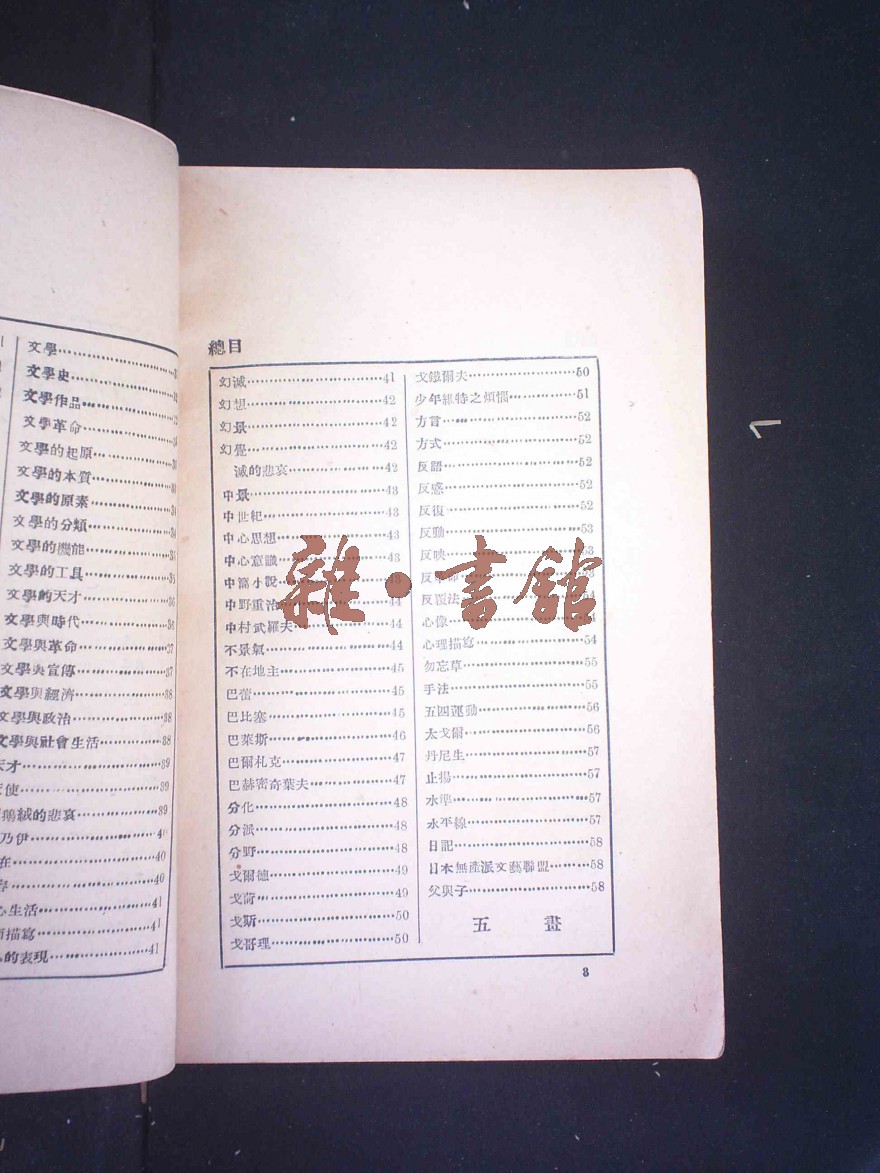 文學
文學史
文學作品
文學革命
文學的起原
文學的本質
文學的原素
文學的分類
文學的機能
文學的工具
文學的天才
文學與時代
文學與革命……37
文學與宣傳……37
文學與經濟……38
文學與政治……38
文學與社會生活……38
天才……39
天使……39
鵝絨的悲哀……39
乃伊……40
在……40
……40
心生活……41
描寫……41
的表現……41
總目
幻滅……41
幻想……42
幻景……42
幻覺……42
滅的悲哀……42
中景……43
中世紀……43
中心思想……43
中心意識……43
中篇小說……43
中野重治……44
中村武羅夫……44
不景氣……44
不在地主……45
巴蕾……45
巴比塞……45
巴萊斯……46
巴爾札克……47
巴赫密奇葉夫……47
分化……48
分派……48
分野……48
戈爾德……49
戈蒂……49
戈斯……50
戈哥理……50
戈鐵爾夫……50
少年維特之煩惱……51
方言……52
方式……52
反語……52
反感……52
反復……52
反動……53
反映……53
反革命……53
反覆法……54
心像……54
心理描寫……54
勿忘草……55
手法……55
五四運動……56
太戈爾……56
丹尼生……57
止揚……57
水準……57
水平線……57
日記……58
日本無產派文藝聯盟……58
父與子……58
五畫
3
雜·書館